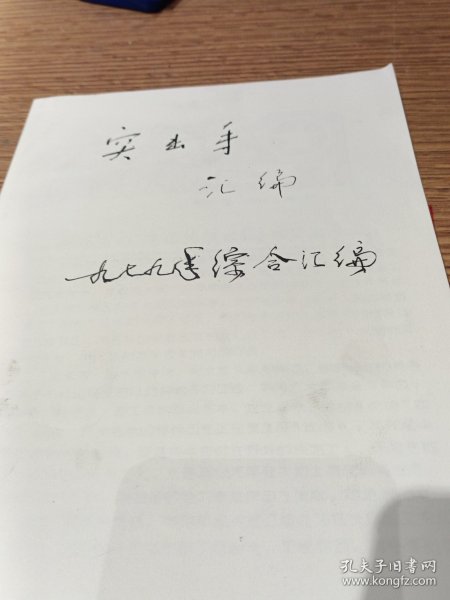 突击手
汇编
一九七九年综合汇编
孔夫子旧书网
www.kongfz.com